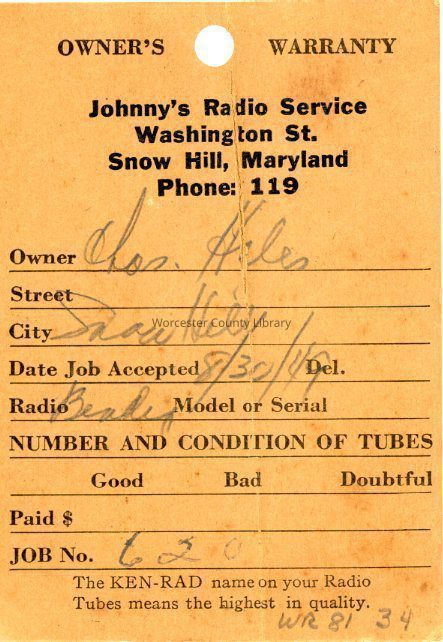 OWNER'S WARRANTY
Johnny's Radio Service
Washington St.
Snow Hill, Maryland
Phone: 119
Owner Chas. Hiles
Street
City Snow Hill
Worcester County Library
Date Job Accepted 8/30/49 Del.
Radio Bendix Model or Serial
NUMBER AND CONDITION OF TUBES
Good Bad Doubtful
Paid $
JOB No. 620
The KEN-RAD name on your Radio
Tubes means the highest in quality.
WR 81 34